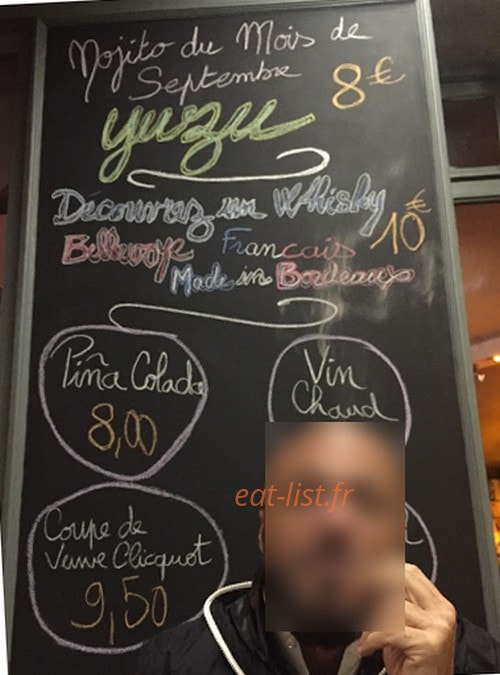 Mojito du Mois de
Septembre 8€
yuzu
Découvrez un Whisky
Bellevoye Francais 10€
Made in Bordeaux
Piña Colada
8,00
Vin
Chaud
Coupe de
Veuve Clicquot
9,50
eat-list.fr